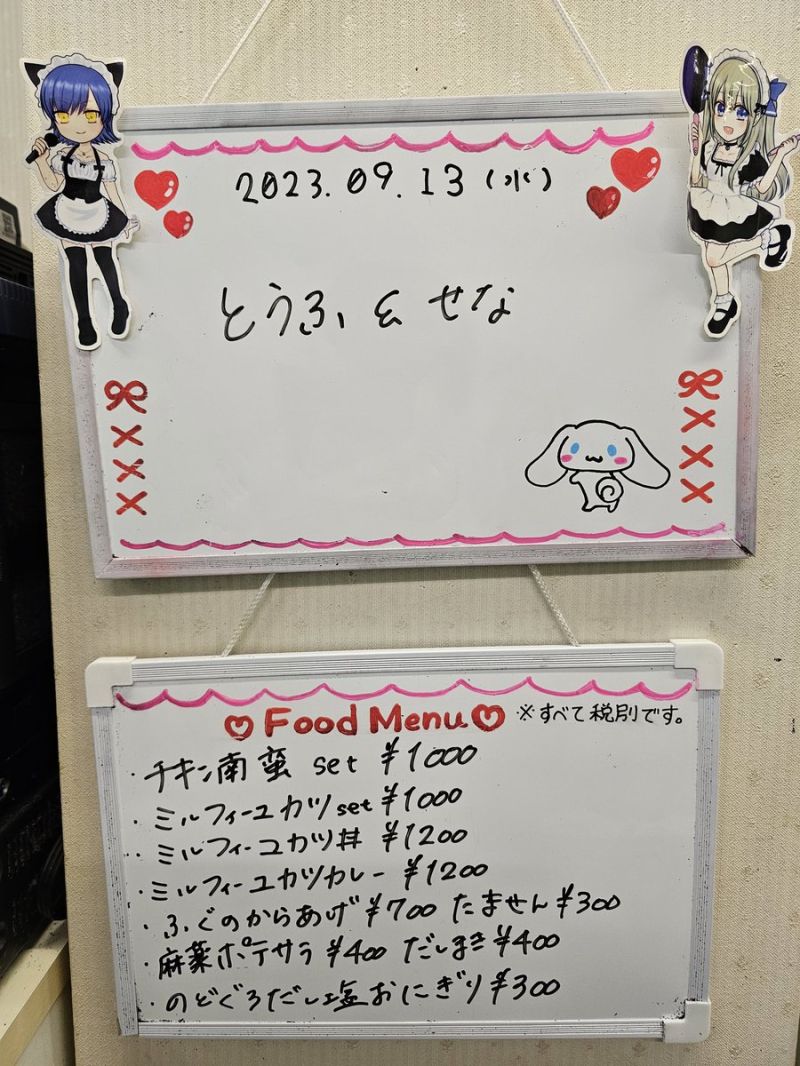 2023.09.13(水)
とうふ & せな
Food Menu ※すべて税別です。
・チキン南蛮 set ¥1000
・ミルフィーユカツset ¥1000
・ミルフィーユカツ丼 ¥1200
・ミルフィーユカツカレー ¥1200
・ふぐのからあげ ¥700 たません ¥300
・麻薬ポテサラ ¥400 だしまき ¥400
・のどぐろだし塩おにぎり ¥300